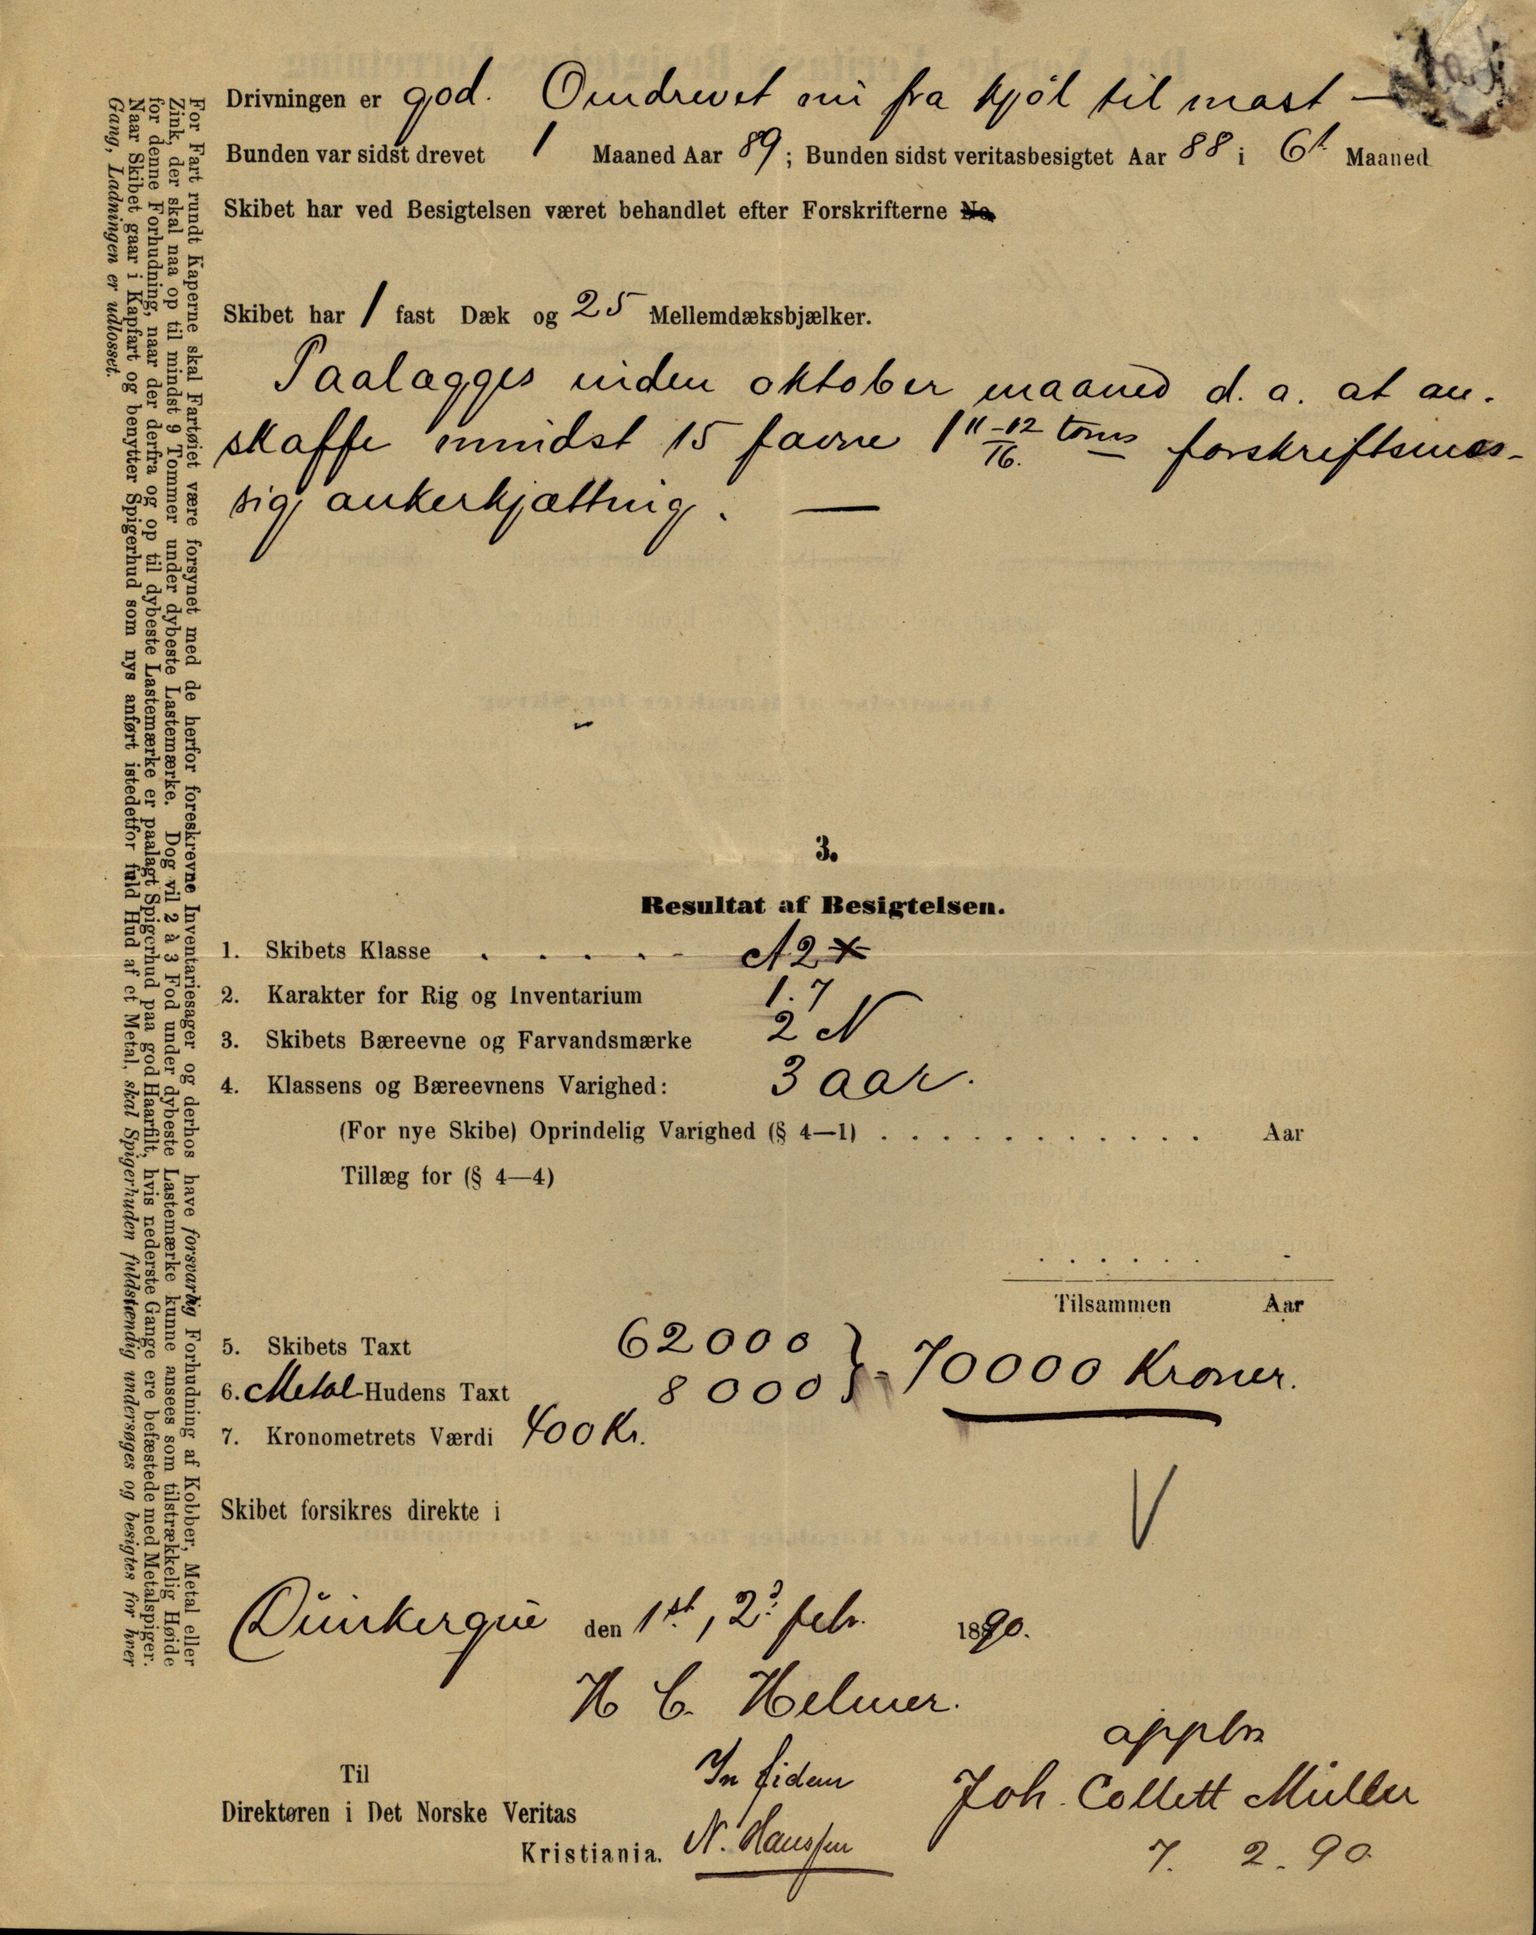 Drivningen er god. Omdrevet nu fra kjöl til mast —
Bunden var sidst drevet 1 Maaned Aar 89; Bunden sidst veritasbesigtet Aar 88 i 6t Maaned
Skibet har ved Besigtelsen været behandlet efter Forskrifterne No.
Skibet har 1 fast Dæk og 25 Mellemdæksbjælker.
Paalægges inden oktober maaned d. a. at an-
skaffe mindst 15 favne 1 11-12/16. toms forskriftsmæs-
sig ankerkjætting. —
3.
Resultat af Besigtelsen.
1. Skibets Klasse . . . . . A2*
2. Karakter for Rig og Inventarium 1.7
3. Skibets Bæreevne og Farvandsmærke 2 N
4. Klassens og Bæreevnens Varighed: 3 aar.
(For nye Skibe) Oprindelig Varighed (§ 4—1) . . . . . . . . . . . . Aar
Tillæg for (§ 4—4)
. . . . . . -
Tilsammen Aar
5. Skibets Taxt 62000
6. Metal-Hudens Taxt 8000 } = 70000 Kroner.
7. Kronometrets Værdi 400 Kr.
Skibet forsikres direkte i
V
Dünkerque den 1st, 2d febr. 1890.
H C. Helmer.
Til
Direktøren i Det Norske Veritas
Kristiania.
In fidem
N. Hanssen
appbr
Joh. Collett Müller
7. 2. 90
For Fart rundt Kaperne skal Fartøiet være forsynet med de herfor foreskrevne Inventariesager og derhos have forsvarlig Forhudning af Kobber, Metal eller
Zink, der skal naa op til mindst 9 Tommer under dybeste Lastemærke. Dog vil 2 à 3 Fod under dybeste Lastemærke kunne ansees som tilstrækkelig Høide
for denne Forhudning, naar der derfra og op til dybeste Lastemærke er paalagt Spigerhud paa god Haarfilt, hvis nederste Gange ere befæstede med Metalspiger.
Naar Skibet gaar i Kapfart og benytter Spigerhud som nys anført istedetfor fuld Hud af et Metal, skal Spigerhuden fuldstændig undersøges og besigtes for hver
Gang, Ladningen er udlosset.